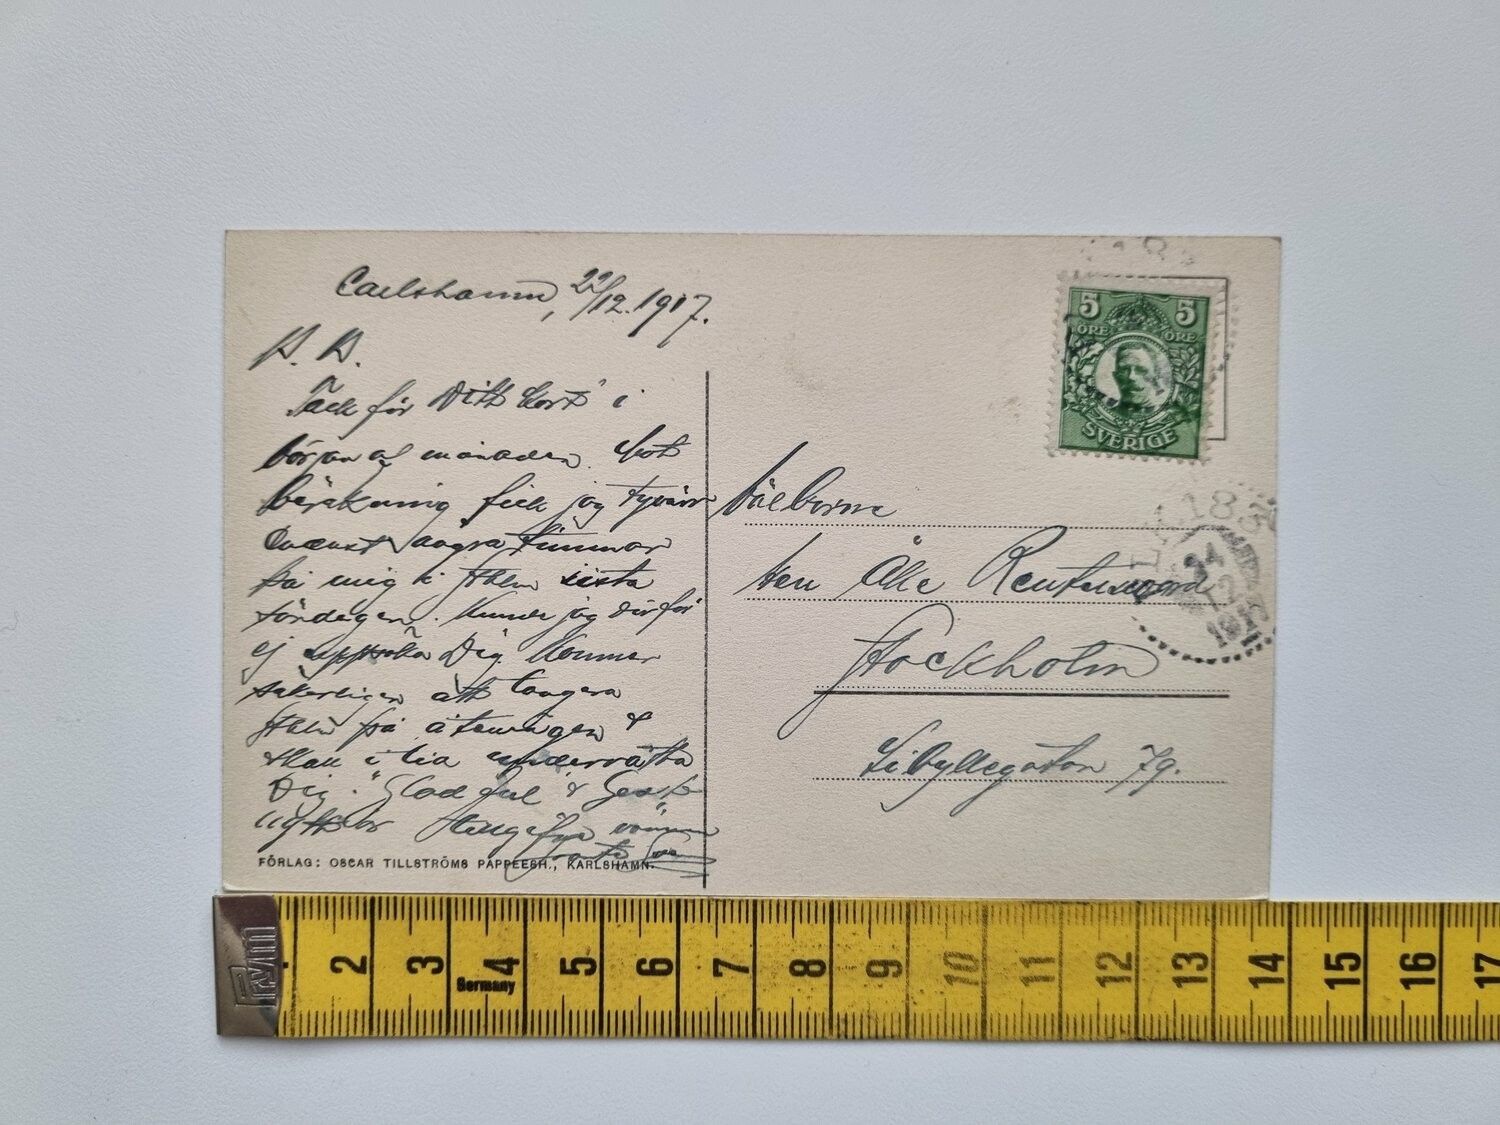 Carlshamn, 22/12. 1917.
B. B.
Tack för Ditt kort i
början af månaden. Mot
beräkning fick jag tyvärr
endast några timmar
på mig i Sthlm sista
söndagen. Kunde jag därför
ej uppsöka Dig. Kommer
säkerligen att tangera
Sthlm på återvägen &
skall i tid underrätta
Dig. "God Jul" &
vännen
FÖRLAG: OSCAR TILLSTRÖMS PAPPERSH., KARLSHAMN.
5 5
ÖRE ÖRE
SVERIGE
Välborne
Herr Åke
Stockholm
Sibyllegatan 79.
24
12
Prym
2 3 4 5 6 7 8 9 10 11 12 13 14 15 16 17
Germany